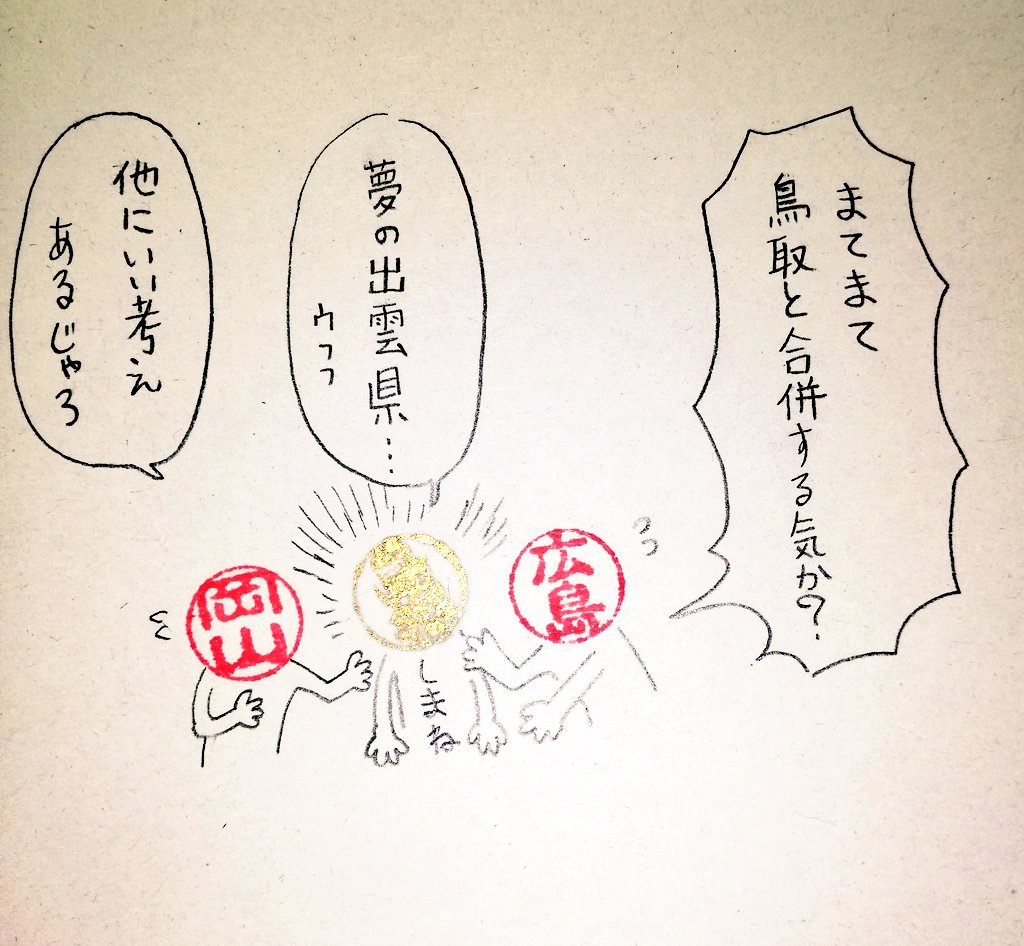 まてまて
鳥取と合併する気か?
夢の出雲県…
ウフフ
他にいい考え
あるじゃろ
広島
しまね
岡山